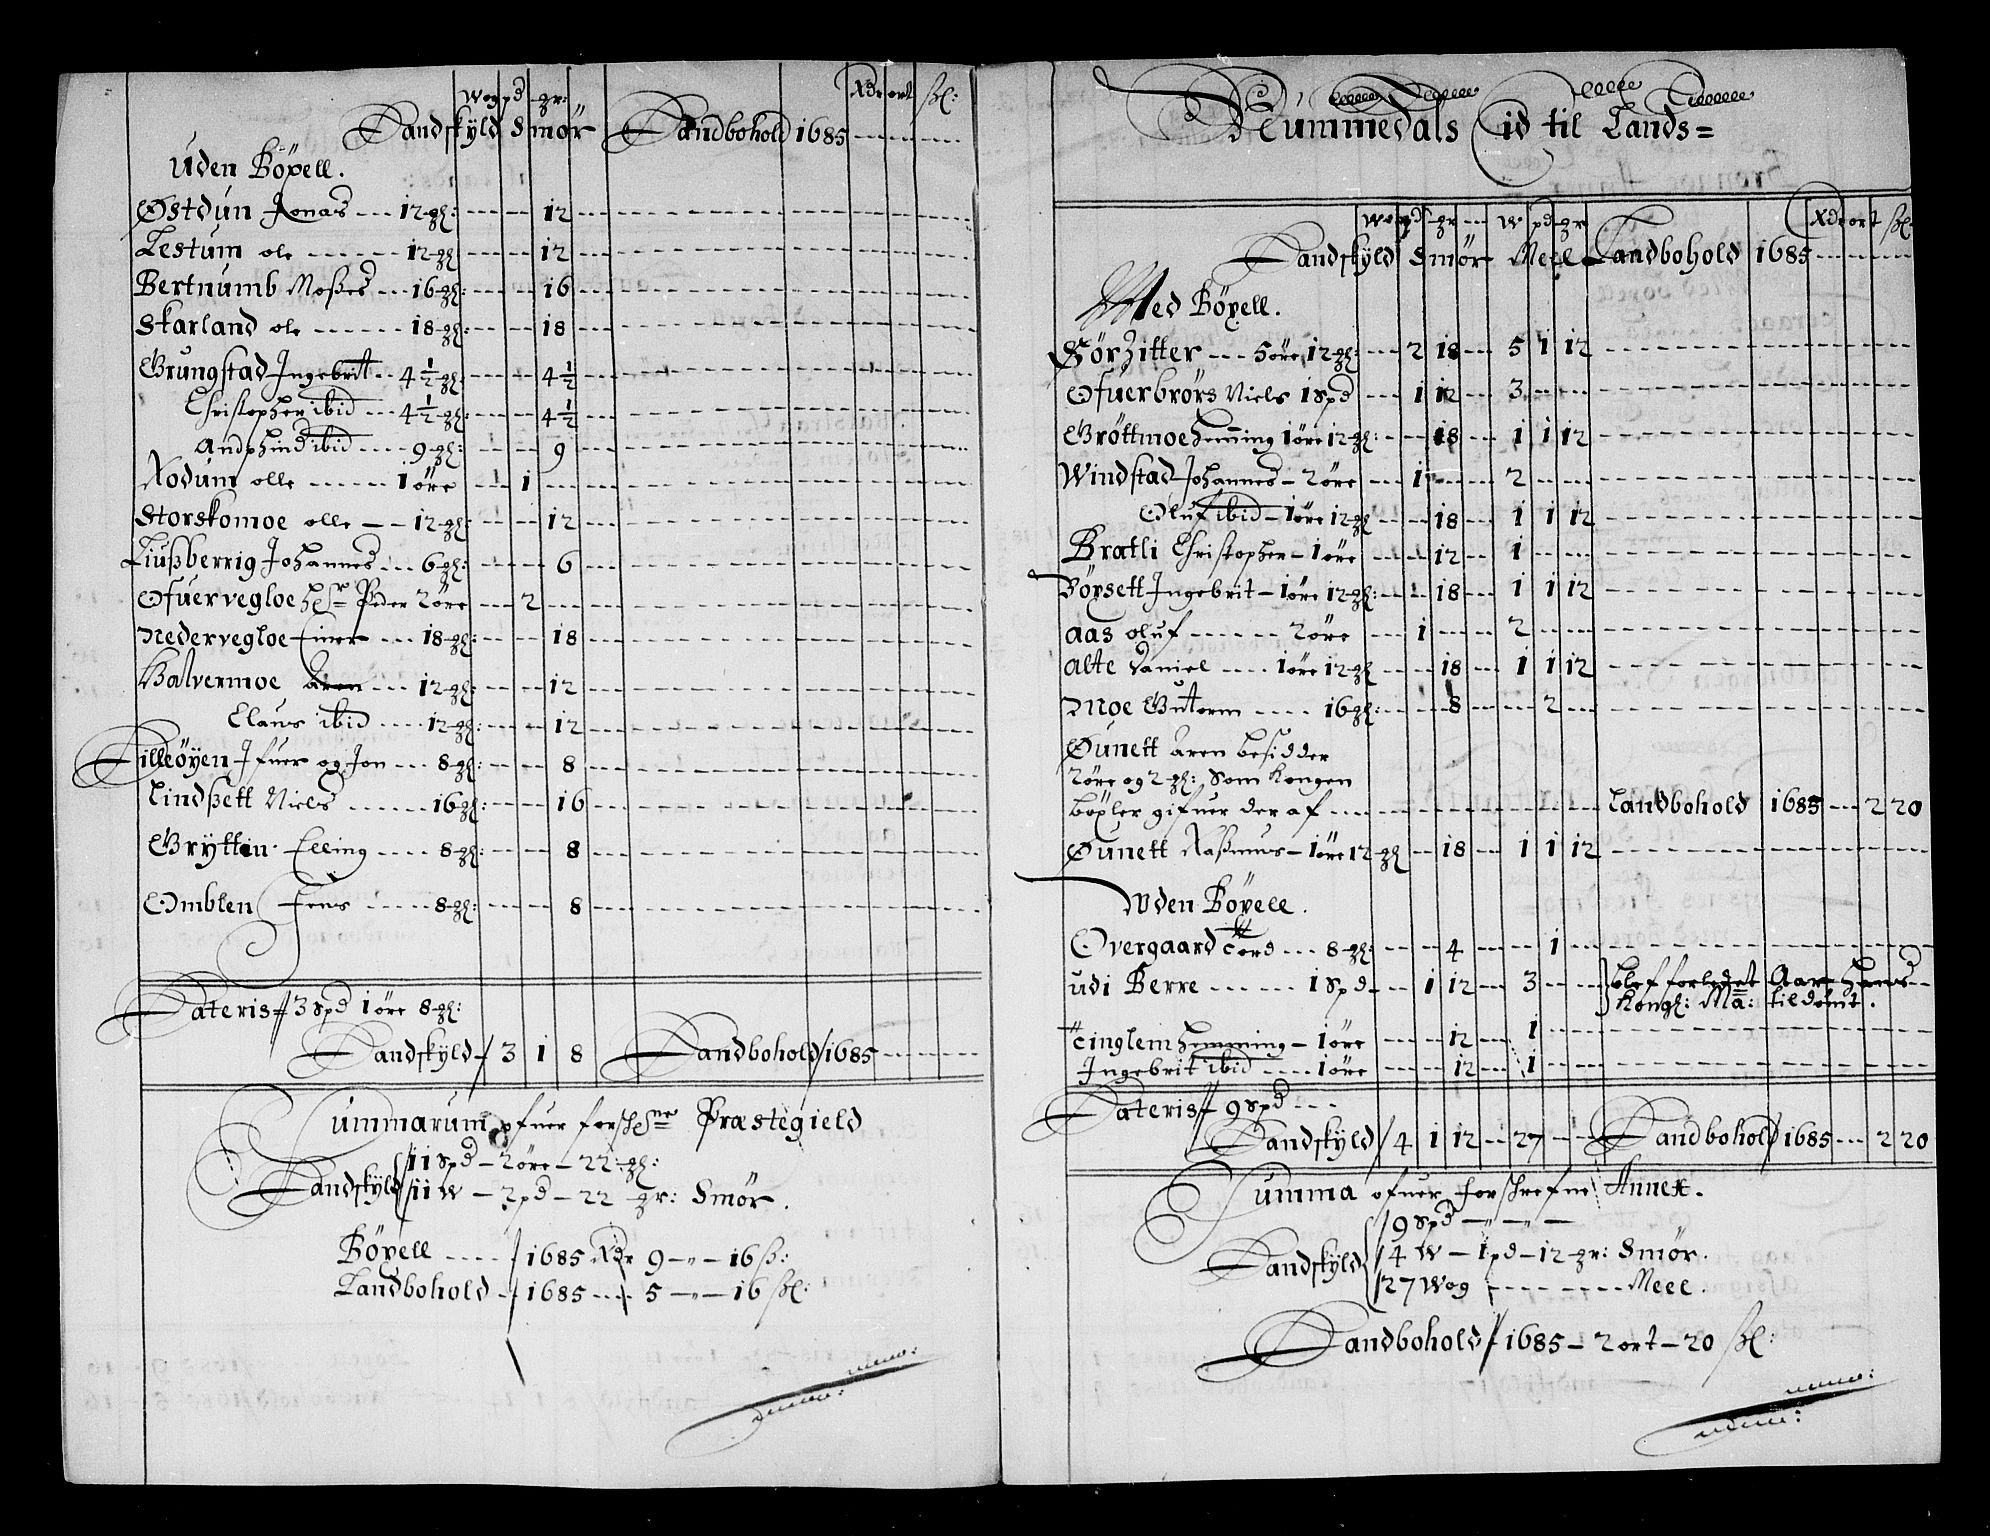 Wog pd gr: Xdr ort ßl:
Landskÿld Smør Landbohold 1685
Uden Böxell.
Østdun Jonas 12 gl: 12
Lestum ole 12 gl: 12
Bertnumb Moßes 16 gl: 16
Skarland ole 18 gl: 18
Grungstad Ingebrit 4½ gl: 4½
Christopher ibid 4½ gl: 4½
Andphind ibid 9 gl: 9
Rodum olle 1 öre 1
Storskomoe olle 12 gl: 12
Liußberrig Johannes 6 gl: 6
Ofuervegloe Hr Peder 2 öre 2
Nedervegloe Einer 18 gl: 18
Halvermoe Aren 12 gl: 12
Claus ibid 12 gl: 12
Lilleöyen Ifuer og Jon 8 gl: 8
Lindßett Niels 16 gl: 16
Gryttin Elling 8 gl: 8
Omblen Jens 8 gl: 8
Lateris 3 Spd 1 öre 8 gl:
Landskÿld 3 1 8 Landbohold 1685
Summarum ofuer forschne Præstegield
Landskÿld 11 Spd 2 öre 22 gl:
11 W 2 pd 22 gr: Smör.
Böxell 1685 Xdr 9 16 ß:
Landbohold 1685 5 16 ßl:
Nummedals Lid til Lands=
Wog pd gr W pd gr Xdr ort ßl
Landskÿld Smör Meel Landbohold 1685
Med Böxell.
Sörzitter 5 öre 12 gl: 2 18 5 1 12
Ofuerbrörs Niels 1 Spd 1 12 3
Gröttmoe Henning 1 öre 12 gl: 18 1 1 12
Windstad Johannes 2 öre 1 2
Oluf ibid 1 öre 12 gl 18 1 1 12
Bratli Christopher 1 öre 12 1
Börsett Ingebrit 1 öre 12 gl: 18 1 1 12
Aas oluf 2 öre 1 2
Alte Daniel 1 öre 12 gl 18 1 1 12
Moe Guttorm 16 gl: 8 2
Ounett Aren besidder
2 öre og 2 gl: som Kongen
böxler gifuer der af Landbohold 1685 2 20
Ounett Raßmus 1 öre 12 gl 18 1 1 12
Uden Böxell.
Overgaard Tord 8 gl: 4 1
udi Berre 1 Spd 1 12 3 blef forledet Aar Hans
Kongl: Ma: tildömt.
Tinglem Hemming 1 öre 12 1
Ingebrit ibid 1 öre 12 1
Lateris 9 Spd
Landskÿld 4 1 12 27 Landbohold 1685 2 20
Summa ofuer forschrefne Annex.
9 Spd
Landskÿld 4 W 1 pd 12 gr: Smör.
27 Wog Meel.
Landbohold 1685 2 ort 20 ßl: